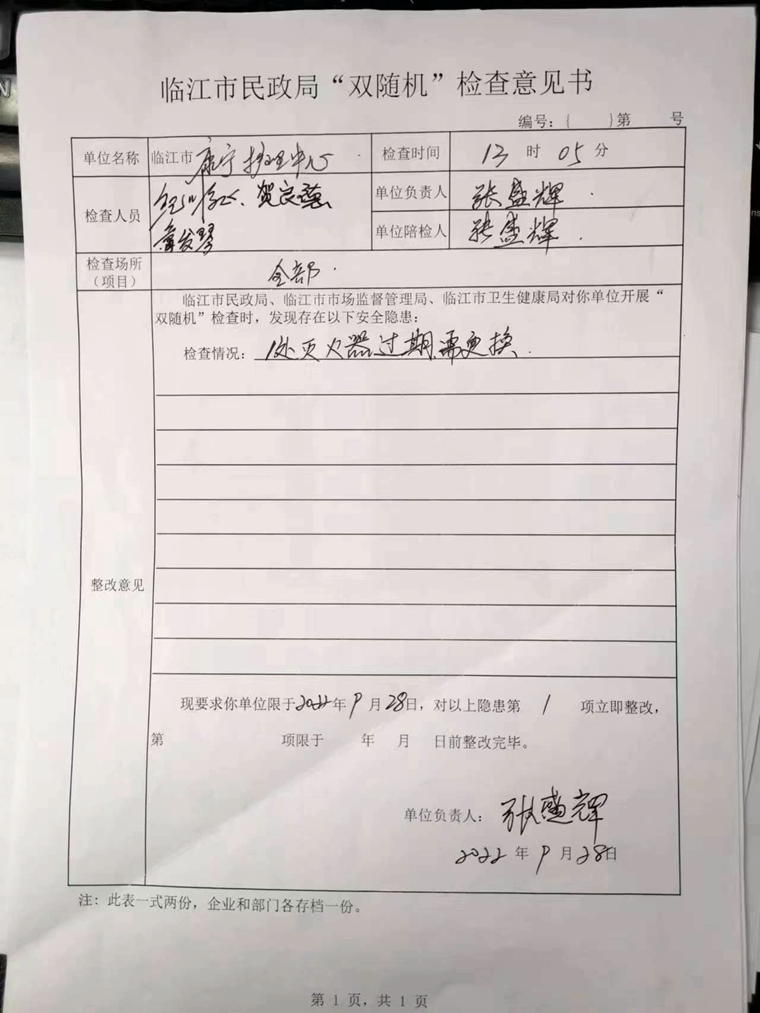 临江市民政局“双随机”检查意见书
编号:( )第 号
单位名称 临江市 康宁护理中心 检查时间 13 时 05 分
检查人员 贺良 单位负责人 张盛辉
单位陪检人 张盛辉
检查场所
(项目) 全部
临江市民政局、临江市市场监督管理局、临江市卫生健康局对你单位开展“
双随机”检查时,发现存在以下安全隐患:
检查情况: 1处灭火器过期,需更换
整改意见
现要求你单位限于2022年9月28日,对以上隐患第 1 项立即整改,
第 项限于 年 月 日前整改完毕。
单位负责人: 张盛辉
2022 年 9 月 28日
注:此表一式两份,企业和部门各存档一份。
第 1 页,共 1 页